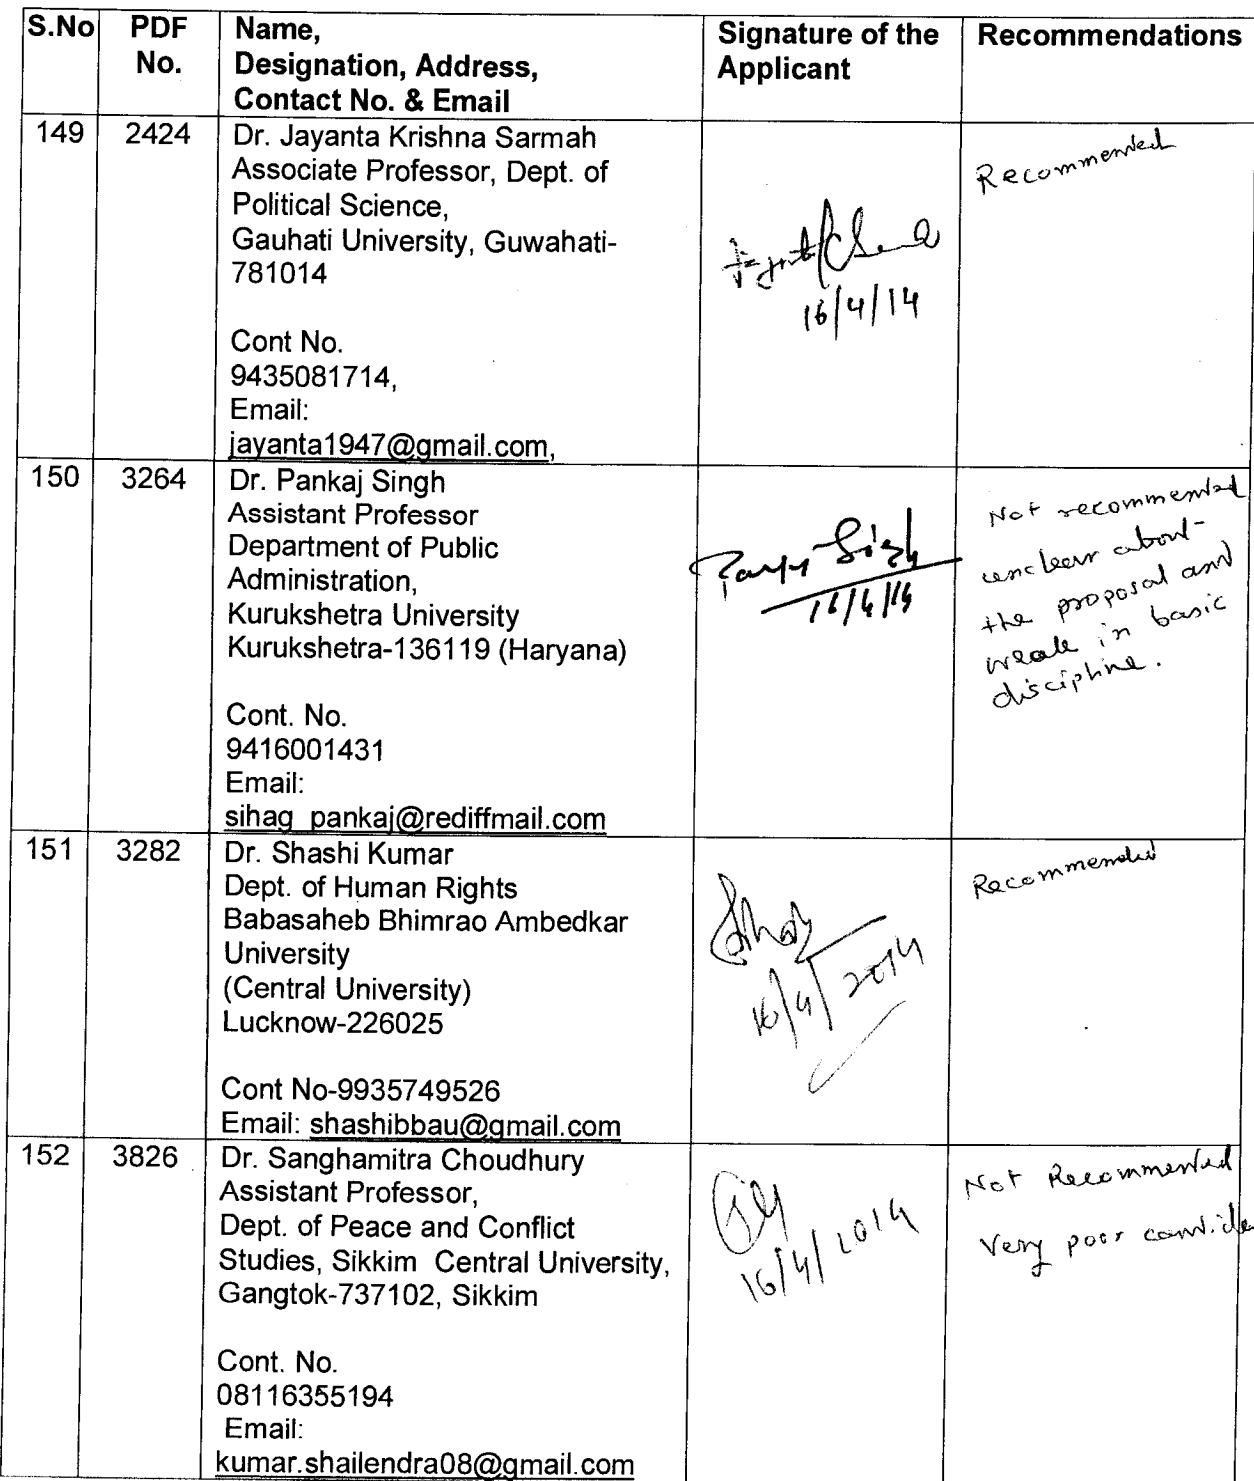 S.No PDF No. Name, Designation, Address, Contact No. & Email Signature of the Applicant Recommendations
149 2424 Dr. Jayanta Krishna Sarmah
Associate Professor, Dept. of
Political Science,
Gauhati University, Guwahati-
781014
Cont No.
9435081714,
Email:
jayanta1947@gmail.com,
16/4/14
Recommended
150 3264 Dr. Pankaj Singh
Assistant Professor
Department of Public
Administration,
Kurukshetra University
Kurukshetra-136119 (Haryana)
Cont. No.
9416001431
Email:
sihag_pankaj@rediffmail.com
Singh
16/4/14
Not recommended
unclear about
the proposal and
weak in basic
discipline.
151 3282 Dr. Shashi Kumar
Dept. of Human Rights
Babasaheb Bhimrao Ambedkar
University
(Central University)
Lucknow-226025
Cont No-9935749526
Email: shashibbau@gmail.com
16/4/2014
Recommended
152 3826 Dr. Sanghamitra Choudhury
Assistant Professor,
Dept. of Peace and Conflict
Studies, Sikkim Central University,
Gangtok-737102, Sikkim
Cont. No.
08116355194
Email:
kumar.shailendra08@gmail.com
16/4/2014
Not Recommended
Very poor